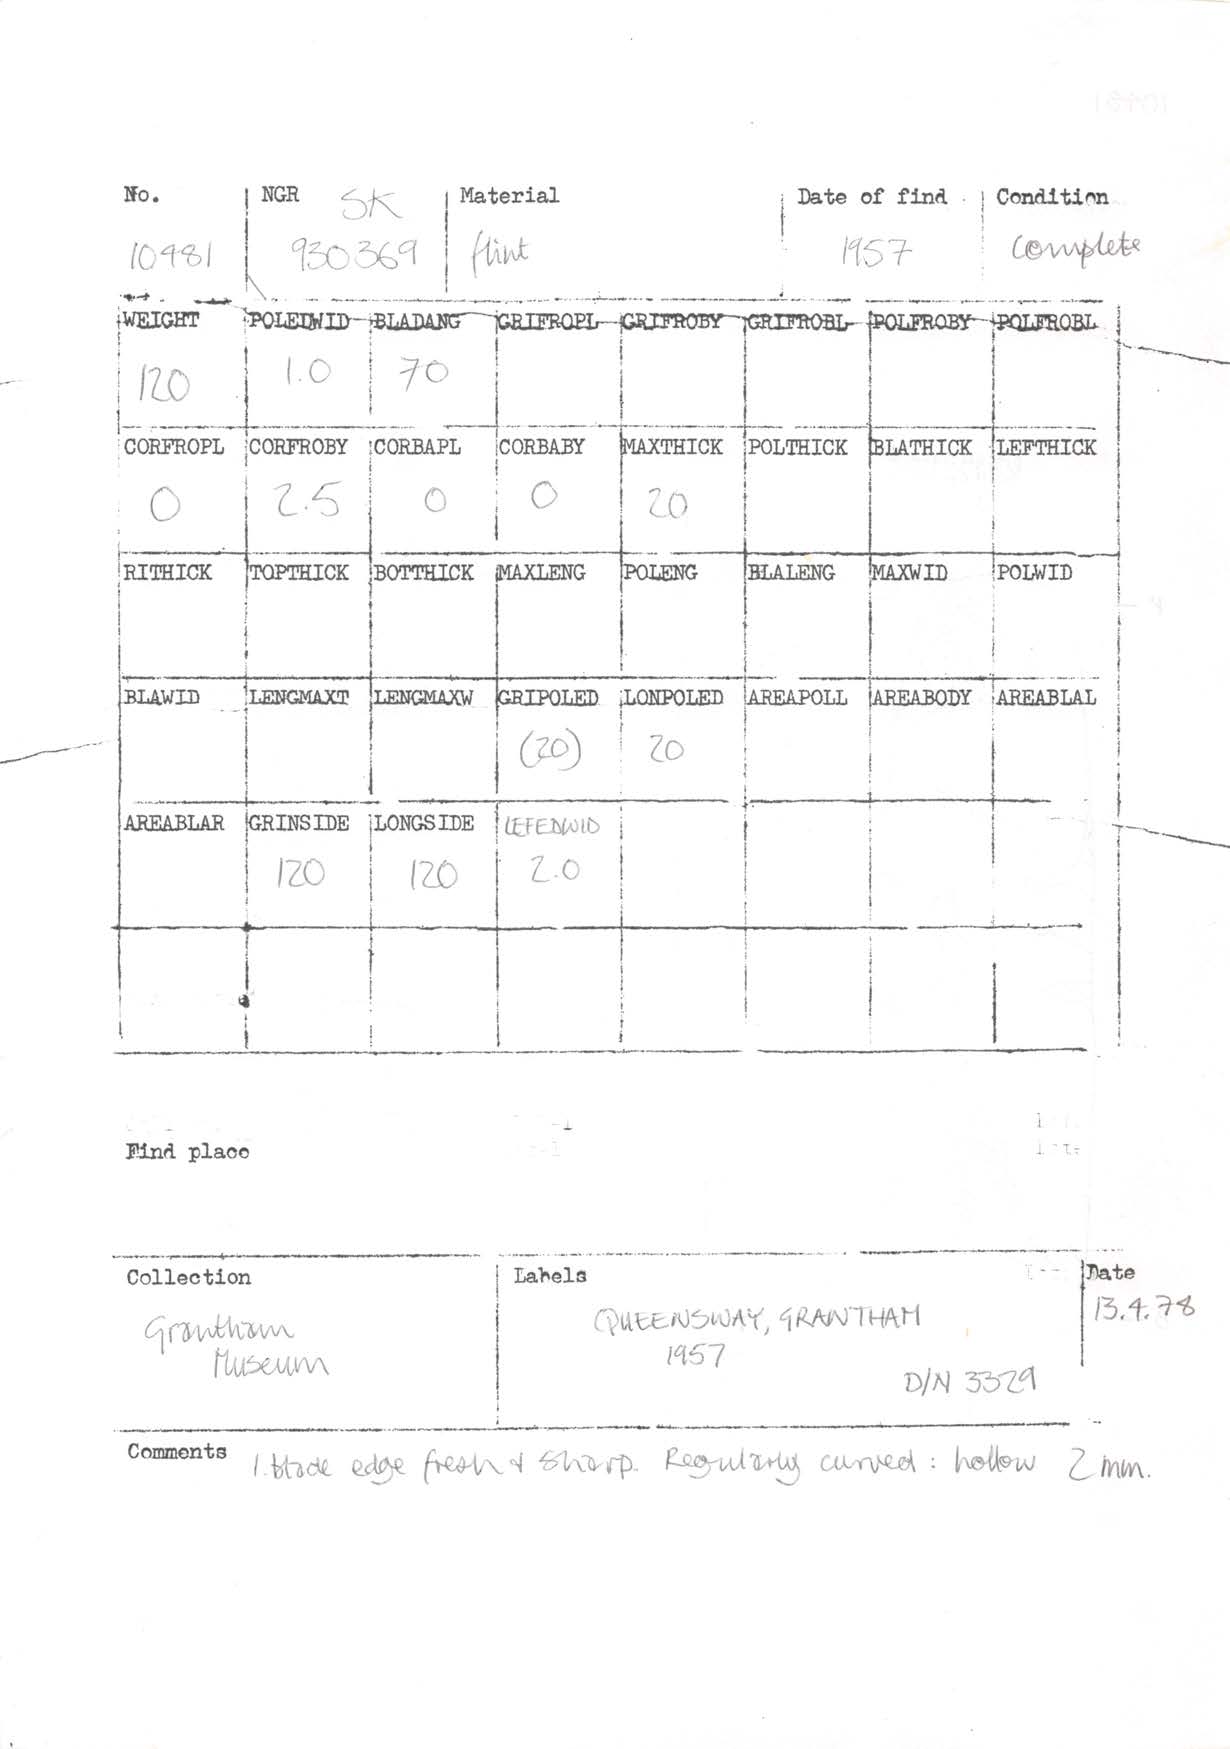 No. NGR SK Material Date of find Condition
10481 930369 flint 1957 Complete
WEIGHT POLEDWID BLADANG GRIFROPL GRIFROBY GRIFROBL POLFROBY POLFROBL
120 1.0 70
CORFROPL CORFROBY CORBAPL CORBABY MAXTHICK POLTHICK BLATHICK LEFTHICK
0 2.5 0 0 20
RITHICK TOPTHICK BOTTHICK MAXLENG POLENG BLALENG MAXWID POLWID
BLAWID LENGMAXT LENGMAXW GRIPOLED LONPOLED AREAPOLL AREABODY AREABLAL
(20) 20
AREABLAR GRINSIDE LONGSIDE LEFEDWID
120 120 2.0
Find place
Collection Labels Date
Grantham
Museum
QUEENSWAY, GRANTHAM
1957
D/N 3329
13.4.78
Comments 1. blade edge fresh & sharp. Regularly curved : hollow 2 mm.